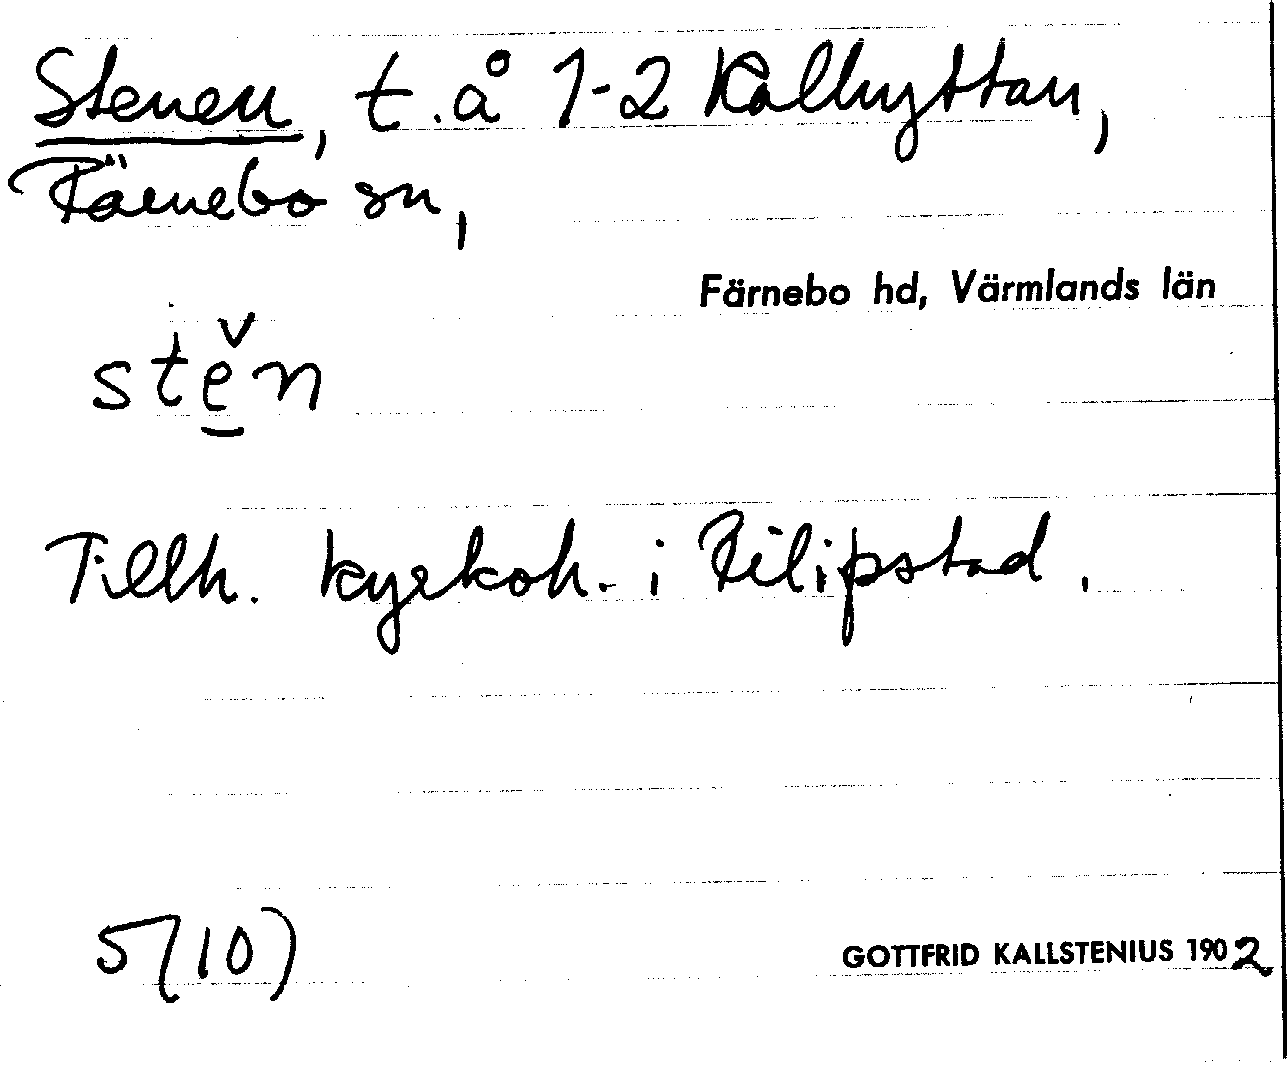 Stenen, t. å 1-2 Kalhyttan,
Färnebo sn,
Färnebo hd, Värmlands län
stě̱n
Tillh. kyrkoh. i Filipstad.
5(10)
GOTTFRID KALLSTENIUS 1902